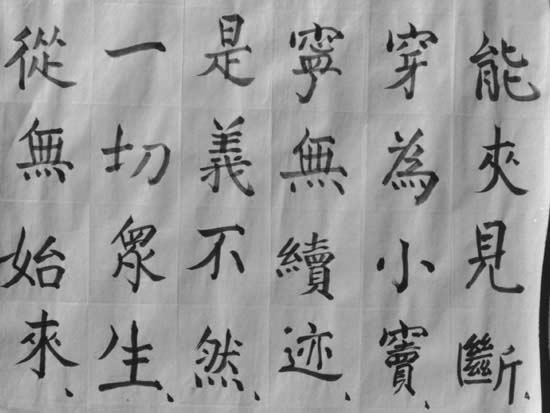 能夾見斷、
穿為小竇、
寧無續迹、
是義不然、
一切眾生、
從無始來、